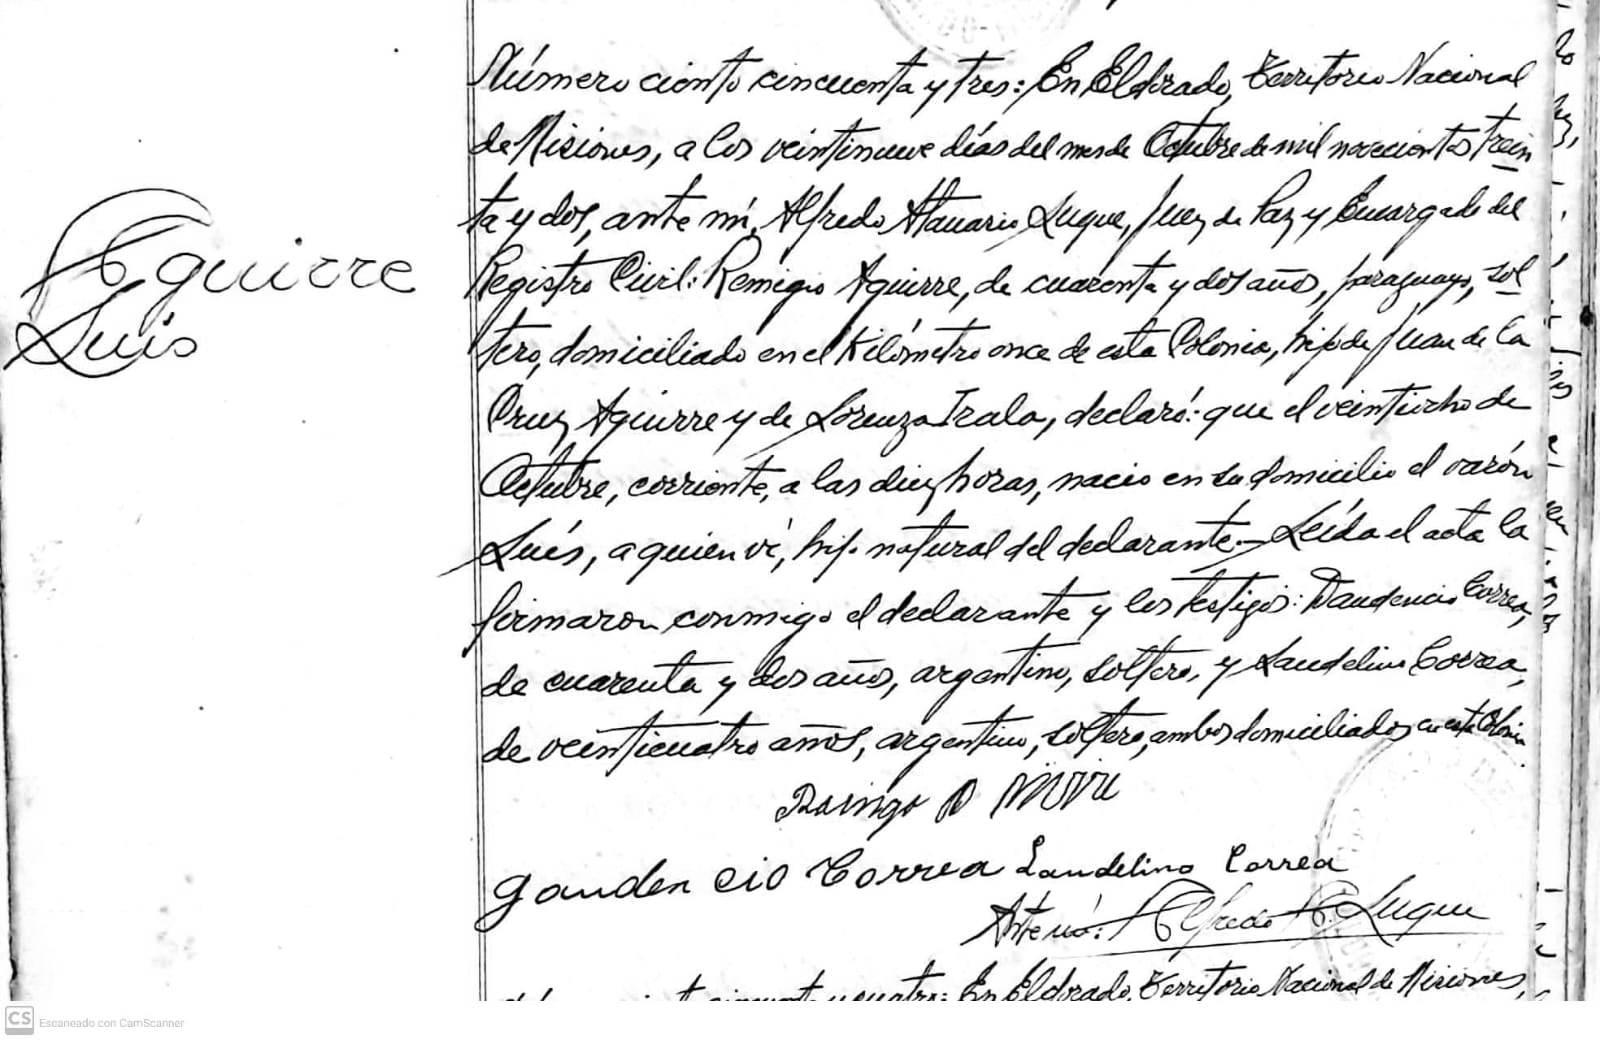 Aguirre
Luis
Número ciento cincuenta y tres: En Eldorado, Territorio Nacional
de Misiones, a los veintinueve días del mes de Octubre de mil novecientos trein
ta y dos, ante mí, Alfredo Atanario Luque, Juez de Paz y Encargado del
Registro Civil: Remigio Aguirre, de cuarenta y dos años, paraguayo, sol
tero, domiciliado en el Kilómetro once de esta Colonia, hijo de Juan de la
Cruz Aguirre y de Lorenza Irala, declaró: que el veintiocho de
Octubre, corriente, a las diez horas, nacio en su domicilio el varón
Luis, a quien ví, hijo natural del declarante.- Leída el acta la
firmaron conmigo el declarante y los testigos: Daudencio Correa,
de cuarenta y dos años, argentino, soltero, y Laudelino Correa,
de veinticuatro años, argentino, soltero, ambos domiciliados en esta Colonia
gauden cio Correa Landelino Correa
Ante mí: Alfredo A. Luque
cincuenta y cuatro: En Eldorado, Territorio Nacional de Misiones,
CS Escaneado con CamScanner